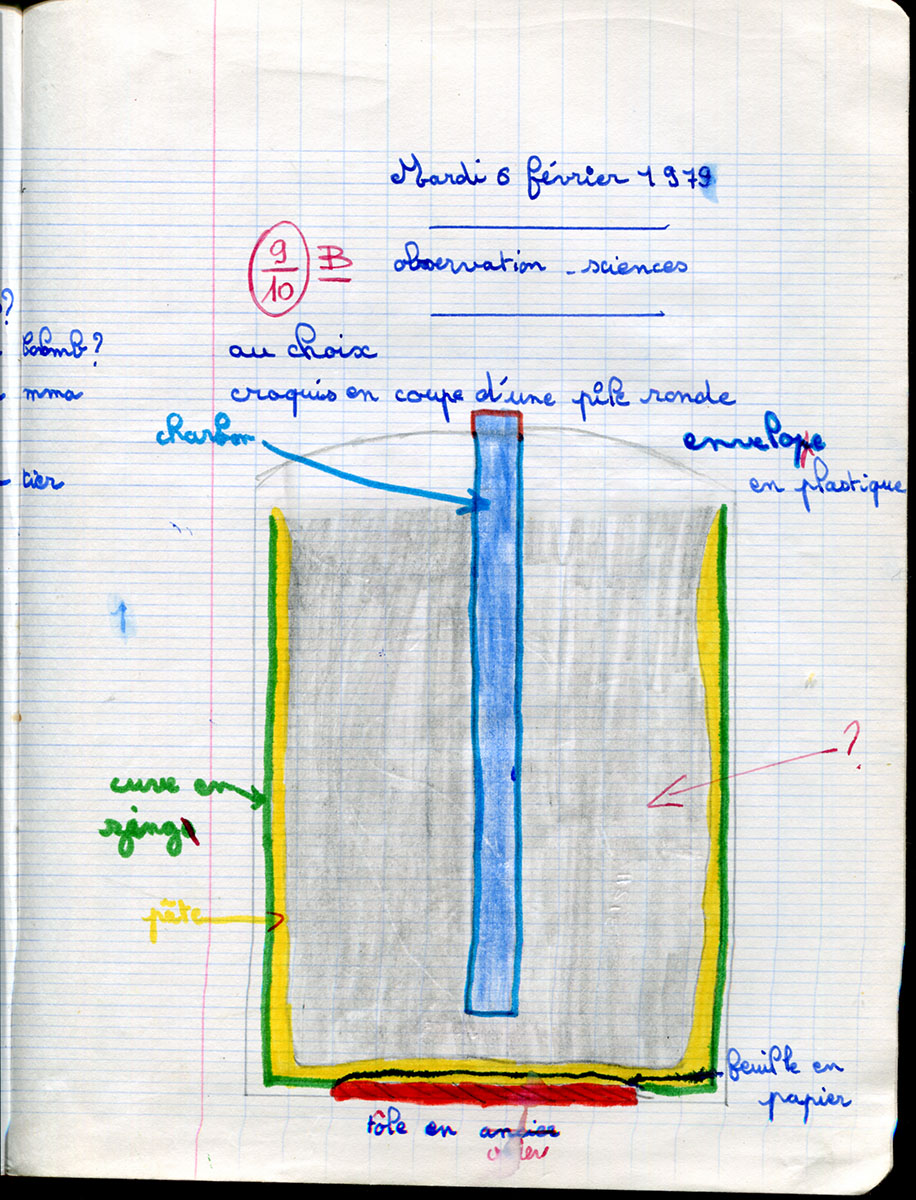 Mardi 6 février 1979
9/10 B
observation - sciences
?
bomb?
au choix
mma
croquis en coupe d'une pile ronde
charbon
enveloppe
en plastique
tier
?
cuve en
zing
pâte
feuille en
papier
tôle en ancier
acier